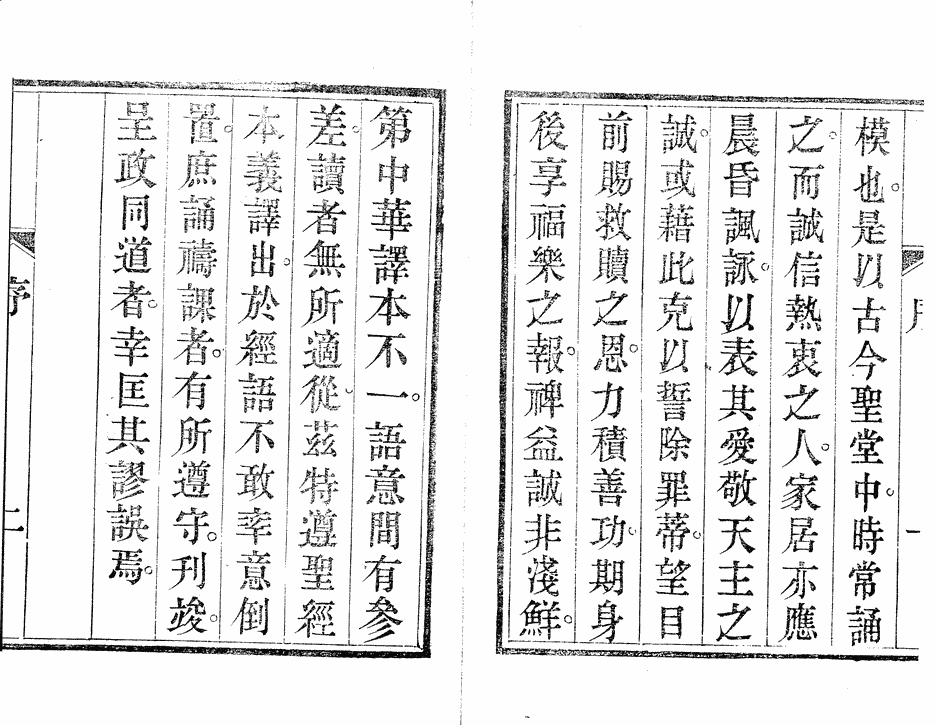 模也。是以古今聖堂中。時常誦
之。而誠信熱衷之人。家居亦應
晨昏諷詠。以表其愛敬天主之
誠。或藉此克以誓除罪蒂。望目
前賜救贖之恩。力積善功。期身
後享福樂之報。禆益誠非淺鮮。
第中華譯本不一。語意間有參
差。讀者無所適從。茲特遵聖經
本義譯出。於經語不敢率意倒
置。庶誦禱課者。有所遵守。刊竣。
呈政同道者。幸匡其謬誤焉。
序
二